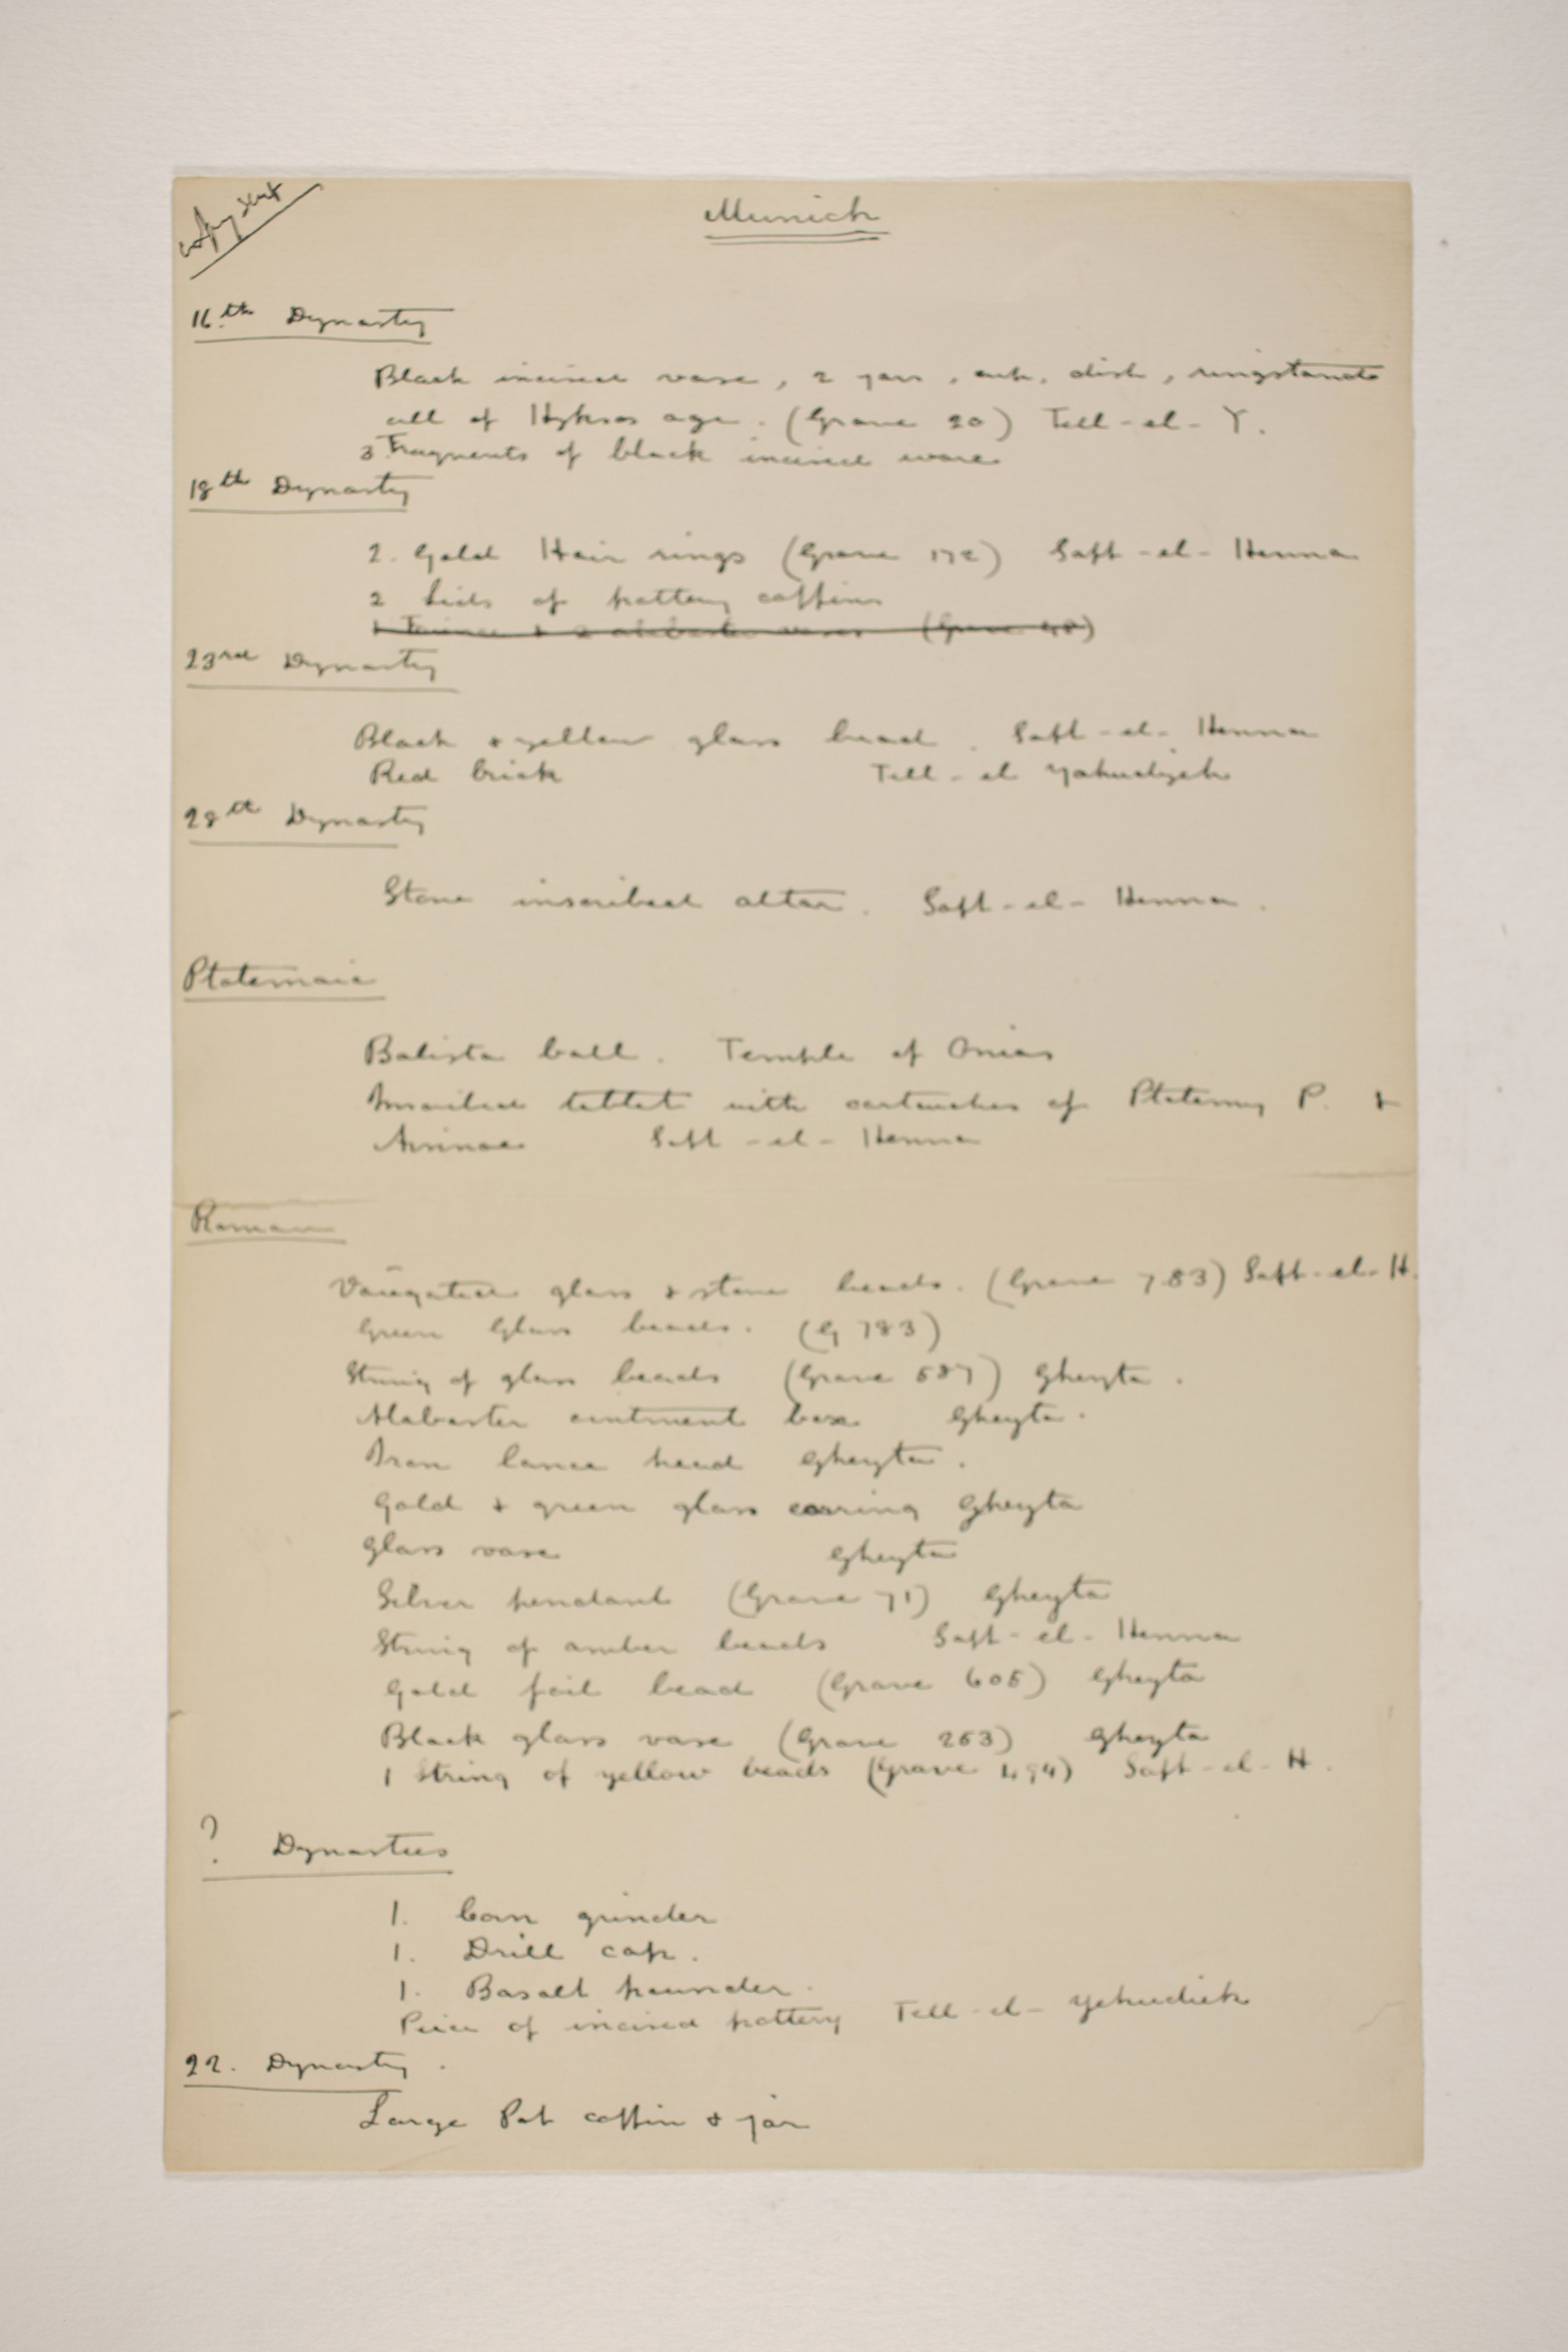 copy sent
Munich
16th Dynasty
Black incised vase, 2 jars, cup, dish, ringstands
all of Hyksos age. (Grave 20) Tell-el-Y.
3 Fragments of black incised ware
18th Dynasty
2. Gold Hair rings (Grave 172) Saft-el-Henna
2 Lids of pottery coffins
2 alabaster vases (Grave 48)
23rd Dynasty
Black & yellow glass bead. Saft-el-Henna
Red brick Tell-el Yahudiyeh
28th Dynasty
Stone inscribed altar. Saft-el-Henna.
Ptolemaic
Balista ball. Temple of Onias
Inscribed tablet with cartouches of Ptolemy P. &
Arsinoe Saft-el-Henna
Roman
Variegated glass & stone beads. (Grave 783) Saft-el-H.
Green Glass beads. (G 783)
String of glass beads (Grave 587) Gheyta.
Alabaster ointment box Gheyta.
Iron lance head Gheyta.
Gold & green glass earring Gheyta
Glass vase Gheyta
Silver pendant (Grave 71) Gheyta
String of amber beads Saft-el-Henna
Gold foil bead (Grave 605) Gheyta
Black glass vase (Grave 263) Gheyta
1 String of yellow beads (Grave 494) Saft-el-H.
? Dynasties
1. Corn grinder
1. Drill cap.
1. Basalt pounder.
Piece of incised pottery Tell-el-Yehudieh
22. Dynasty.
Large Pot coffin & jar